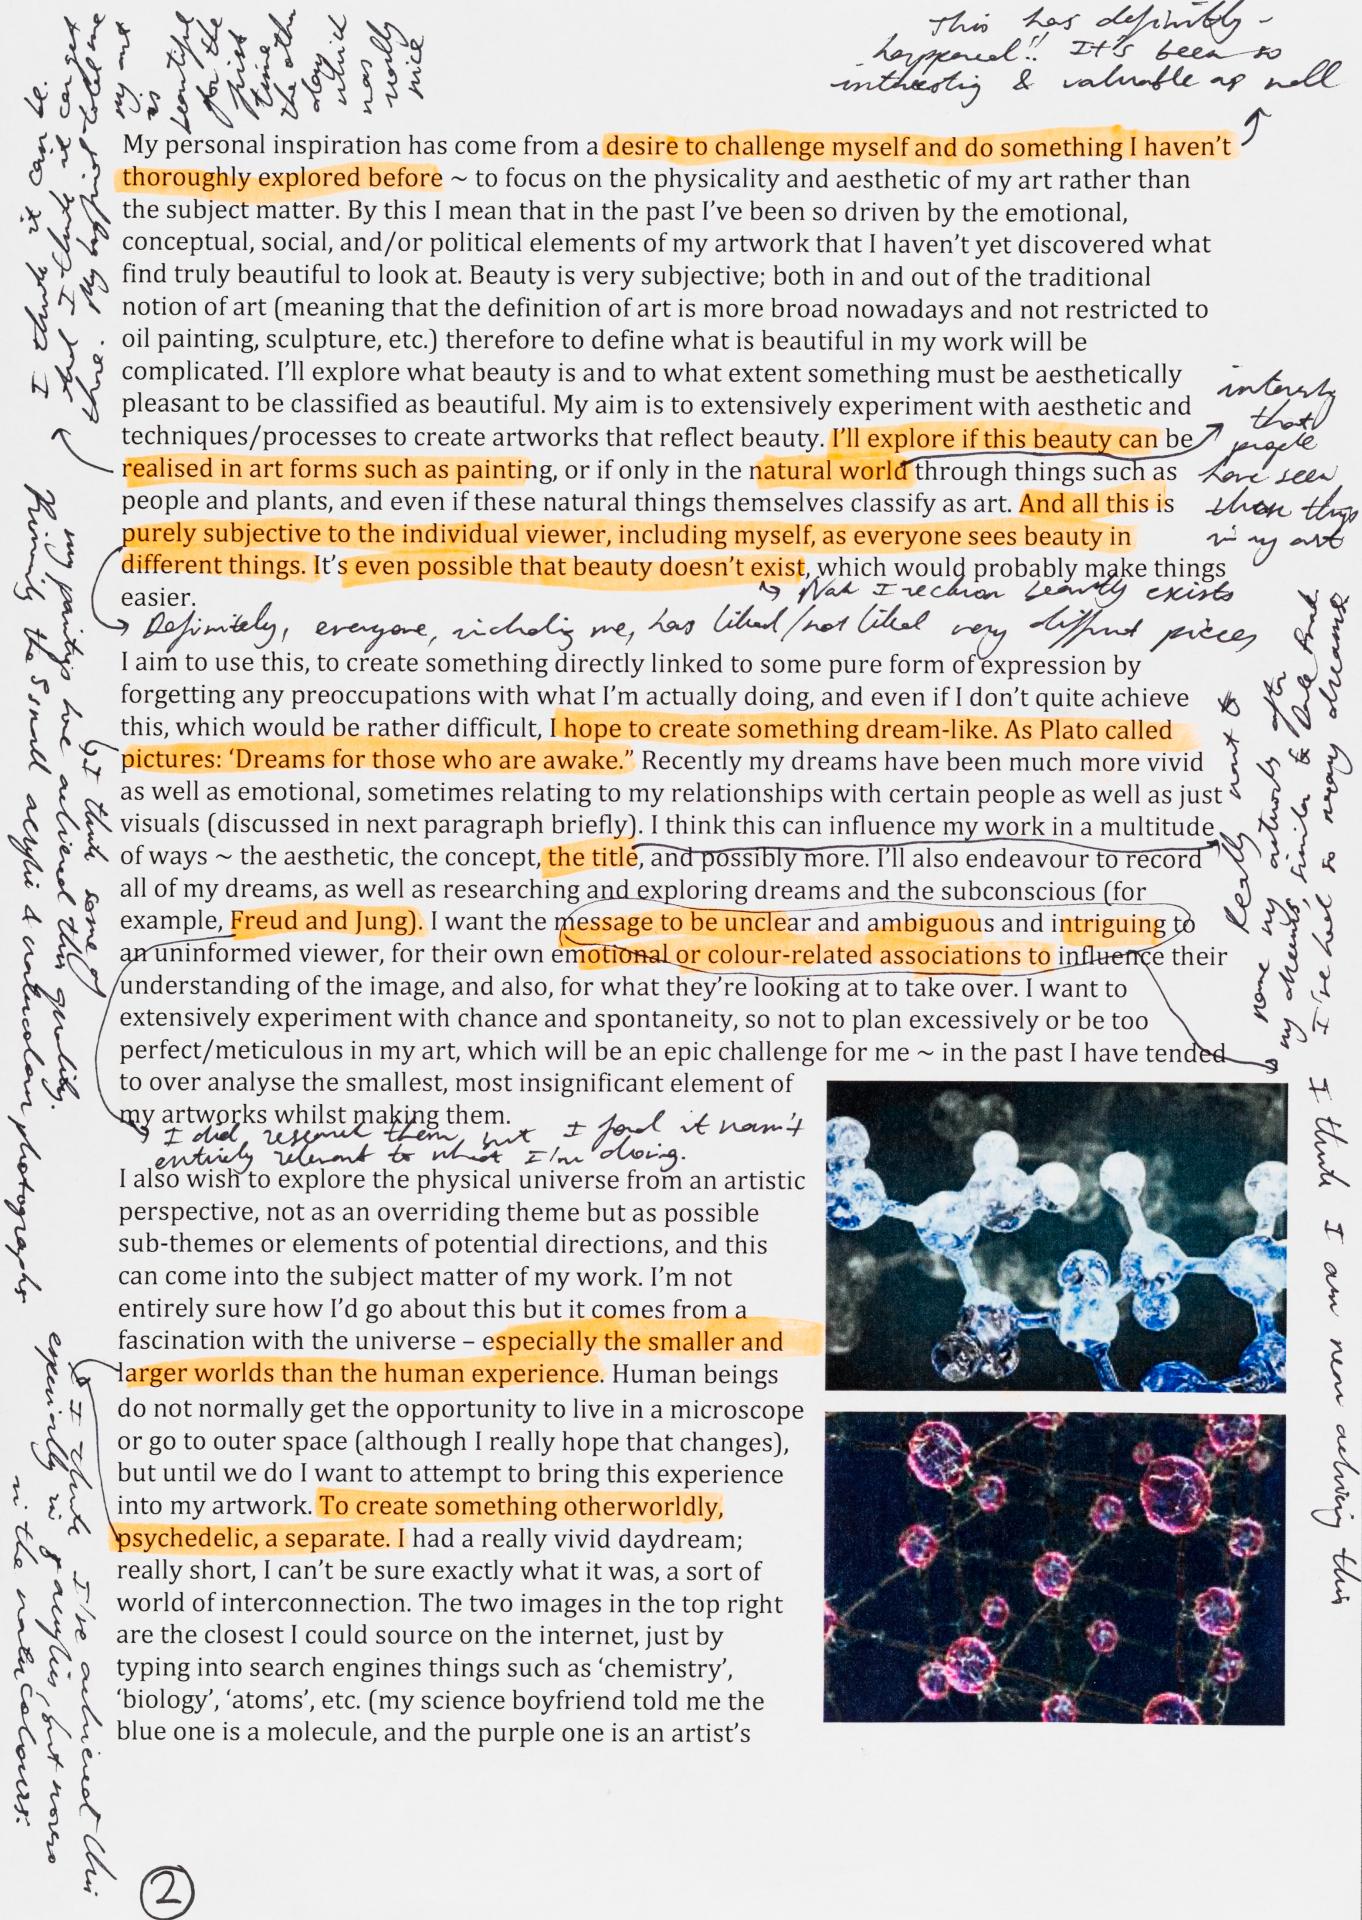 This has definitely
happened!! It's been so
interesting & valuable as well
my art
is
beautiful
for the
first
time
the other
day
which
was
really
nice
My personal inspiration has come from a desire to challenge myself and do something I haven't
thoroughly explored before ~ to focus on the physicality and aesthetic of my art rather than
the subject matter. By this I mean that in the past I've been so driven by the emotional,
conceptual, social, and/or political elements of my artwork that I haven't yet discovered what
find truly beautiful to look at. Beauty is very subjective; both in and out of the traditional
notion of art (meaning that the definition of art is more broad nowadays and not restricted to
oil painting, sculpture, etc.) therefore to define what is beautiful in my work will be
complicated. I'll explore what beauty is and to what extent something must be aesthetically
pleasant to be classified as beautiful. My aim is to extensively experiment with aesthetic and
techniques/processes to create artworks that reflect beauty. I'll explore if this beauty can be
realised in art forms such as painting, or if only in the natural world through things such as
people and plants, and even if these natural things themselves classify as art. And all this is
purely subjective to the individual viewer, including myself, as everyone sees beauty in
different things. It's even possible that beauty doesn't exist, which would probably make things
easier.
interesting
that
people
have seen
these things
in my art
Nah I reckon beauty exists
Definitely, everyone, including me, has liked/not liked very different pieces
I aim to use this, to create something directly linked to some pure form of expression by
forgetting any preoccupations with what I'm actually doing, and even if I don't quite achieve
this, which would be rather difficult, I hope to create something dream-like. As Plato called
pictures: 'Dreams for those who are awake." Recently my dreams have been much more vivid
as well as emotional, sometimes relating to my relationships with certain people as well as just
visuals (discussed in next paragraph briefly). I think this can influence my work in a multitude
of ways ~ the aesthetic, the concept, the title, and possibly more. I'll also endeavour to record
all of my dreams, as well as researching and exploring dreams and the subconscious (for
example, Freud and Jung). I want the message to be unclear and ambiguous and intriguing to
an uninformed viewer, for their own emotional or colour-related associations to influence their
understanding of the image, and also, for what they're looking at to take over. I want to
extensively experiment with chance and spontaneity, so not to plan excessively or be too
perfect/meticulous in my art, which will be an epic challenge for me ~ in the past I have tended
to over analyse the smallest, most insignificant element of
my artworks whilst making them.
I did research them but I found it wasn't
entirely relevant to what I'm doing.
really want to
name my artworks after
my dreams, similar to
I've had so many dreams
I think I am now achieving this
I think some of
my paintings have achieved this quality.
Primarily the small acrylic & watercolour photographs.
I also wish to explore the physical universe from an artistic
perspective, not as an overriding theme but as possible
sub-themes or elements of potential directions, and this
can come into the subject matter of my work. I'm not
entirely sure how I'd go about this but it comes from a
fascination with the universe – especially the smaller and
larger worlds than the human experience. Human beings
do not normally get the opportunity to live in a microscope
or go to outer space (although I really hope that changes),
but until we do I want to attempt to bring this experience
into my artwork. To create something otherworldly,
psychedelic, a separate. I had a really vivid daydream;
really short, I can't be sure exactly what it was, a sort of
world of interconnection. The two images in the top right
are the closest I could source on the internet, just by
typing into search engines things such as 'chemistry',
'biology', 'atoms', etc. (my science boyfriend told me the
blue one is a molecule, and the purple one is an artist's
I think I've achieved this
especially in my acrylics, but more so
in the watercolours.
2